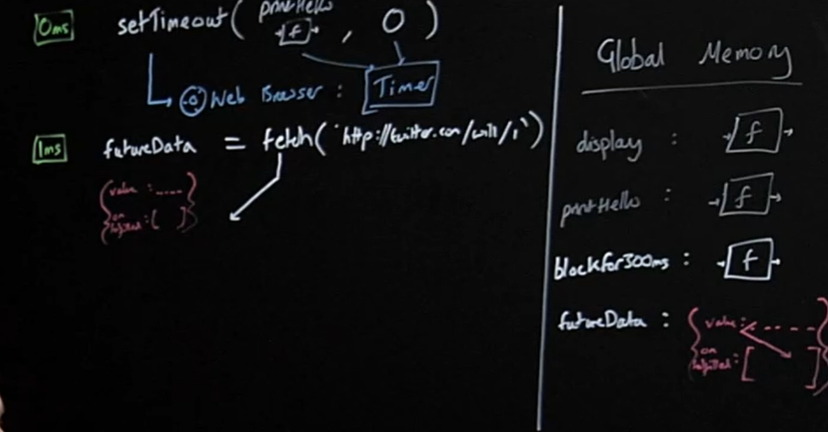 0ms setTimeout( printHello
f , 0 )
Web Browser : Timer
1ms futureData = fetch('http://twitter.com/will/1')
{ value : .....
on
fulfilled : [ ] }
Global Memory
display : f
printHello : f
blockFor300ms : f
futureData : { value : - - - - -
on
fulfilled : [ ] }